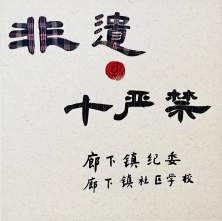 非遗
十严禁
廊下镇纪委
廊下镇社区学校